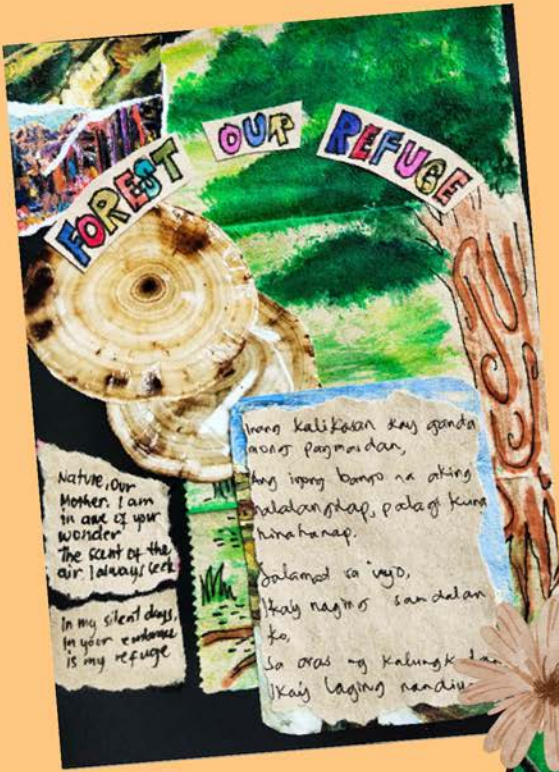 FOREST OUR REFUGE
Nature, our
Mother. I am
in awe of your
wonder
The scent of the
air I always seek
In my silent days,
In your embrace
is my refuge
Inang Kalikasan kay ganda
mong pagmasdan,
Ang iyong bango na aking
nalalanghap, palagi kung
hinahanap.
Salamat sa inyo,
Ikaw naging sandalan
ko,
Sa oras ng kalungkutan
Ikaw laging